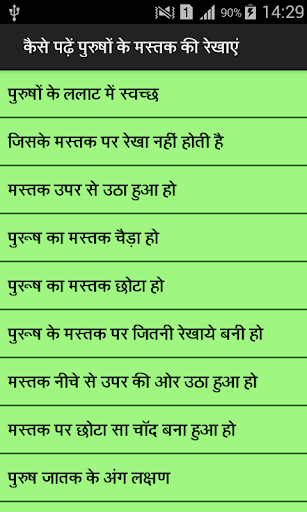 90% 14:29
कैसे पढ़ें पुरुषों के मस्तक की रेखाएं
पुरुषों के ललाट में स्वच्छ
जिसके मस्तक पर रेखा नहीं होती है
मस्तक उपर से उठा हुआ हो
पुरूष का मस्तक चैड़ा हो
पुरूष का मस्तक छोटा हो
पुरूष के मस्तक पर जितनी रेखाये बनी हो
मस्तक नीचे से उपर की ओर उठा हुआ हो
मस्तक पर छोटा सा चॉद बना हुआ हो
पुरुष जातक के अंग लक्षण